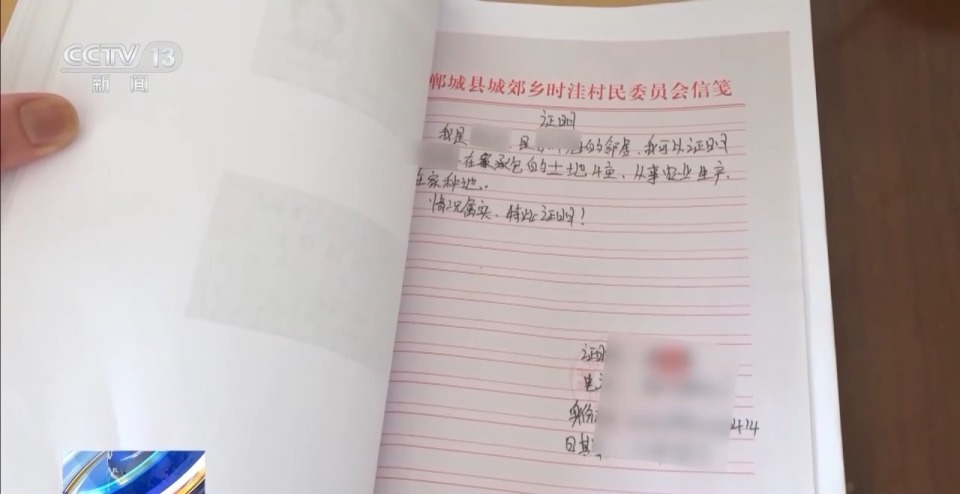 CCTV 13
新闻
郸城县城郊乡时洼村民委员会信笺
证明
我是 是 的邻居,我可以证明
在家承包的土地4亩,从事农业生产,
在家种地.
情况属实,特此证明!
证明
电
身份
2424
日期